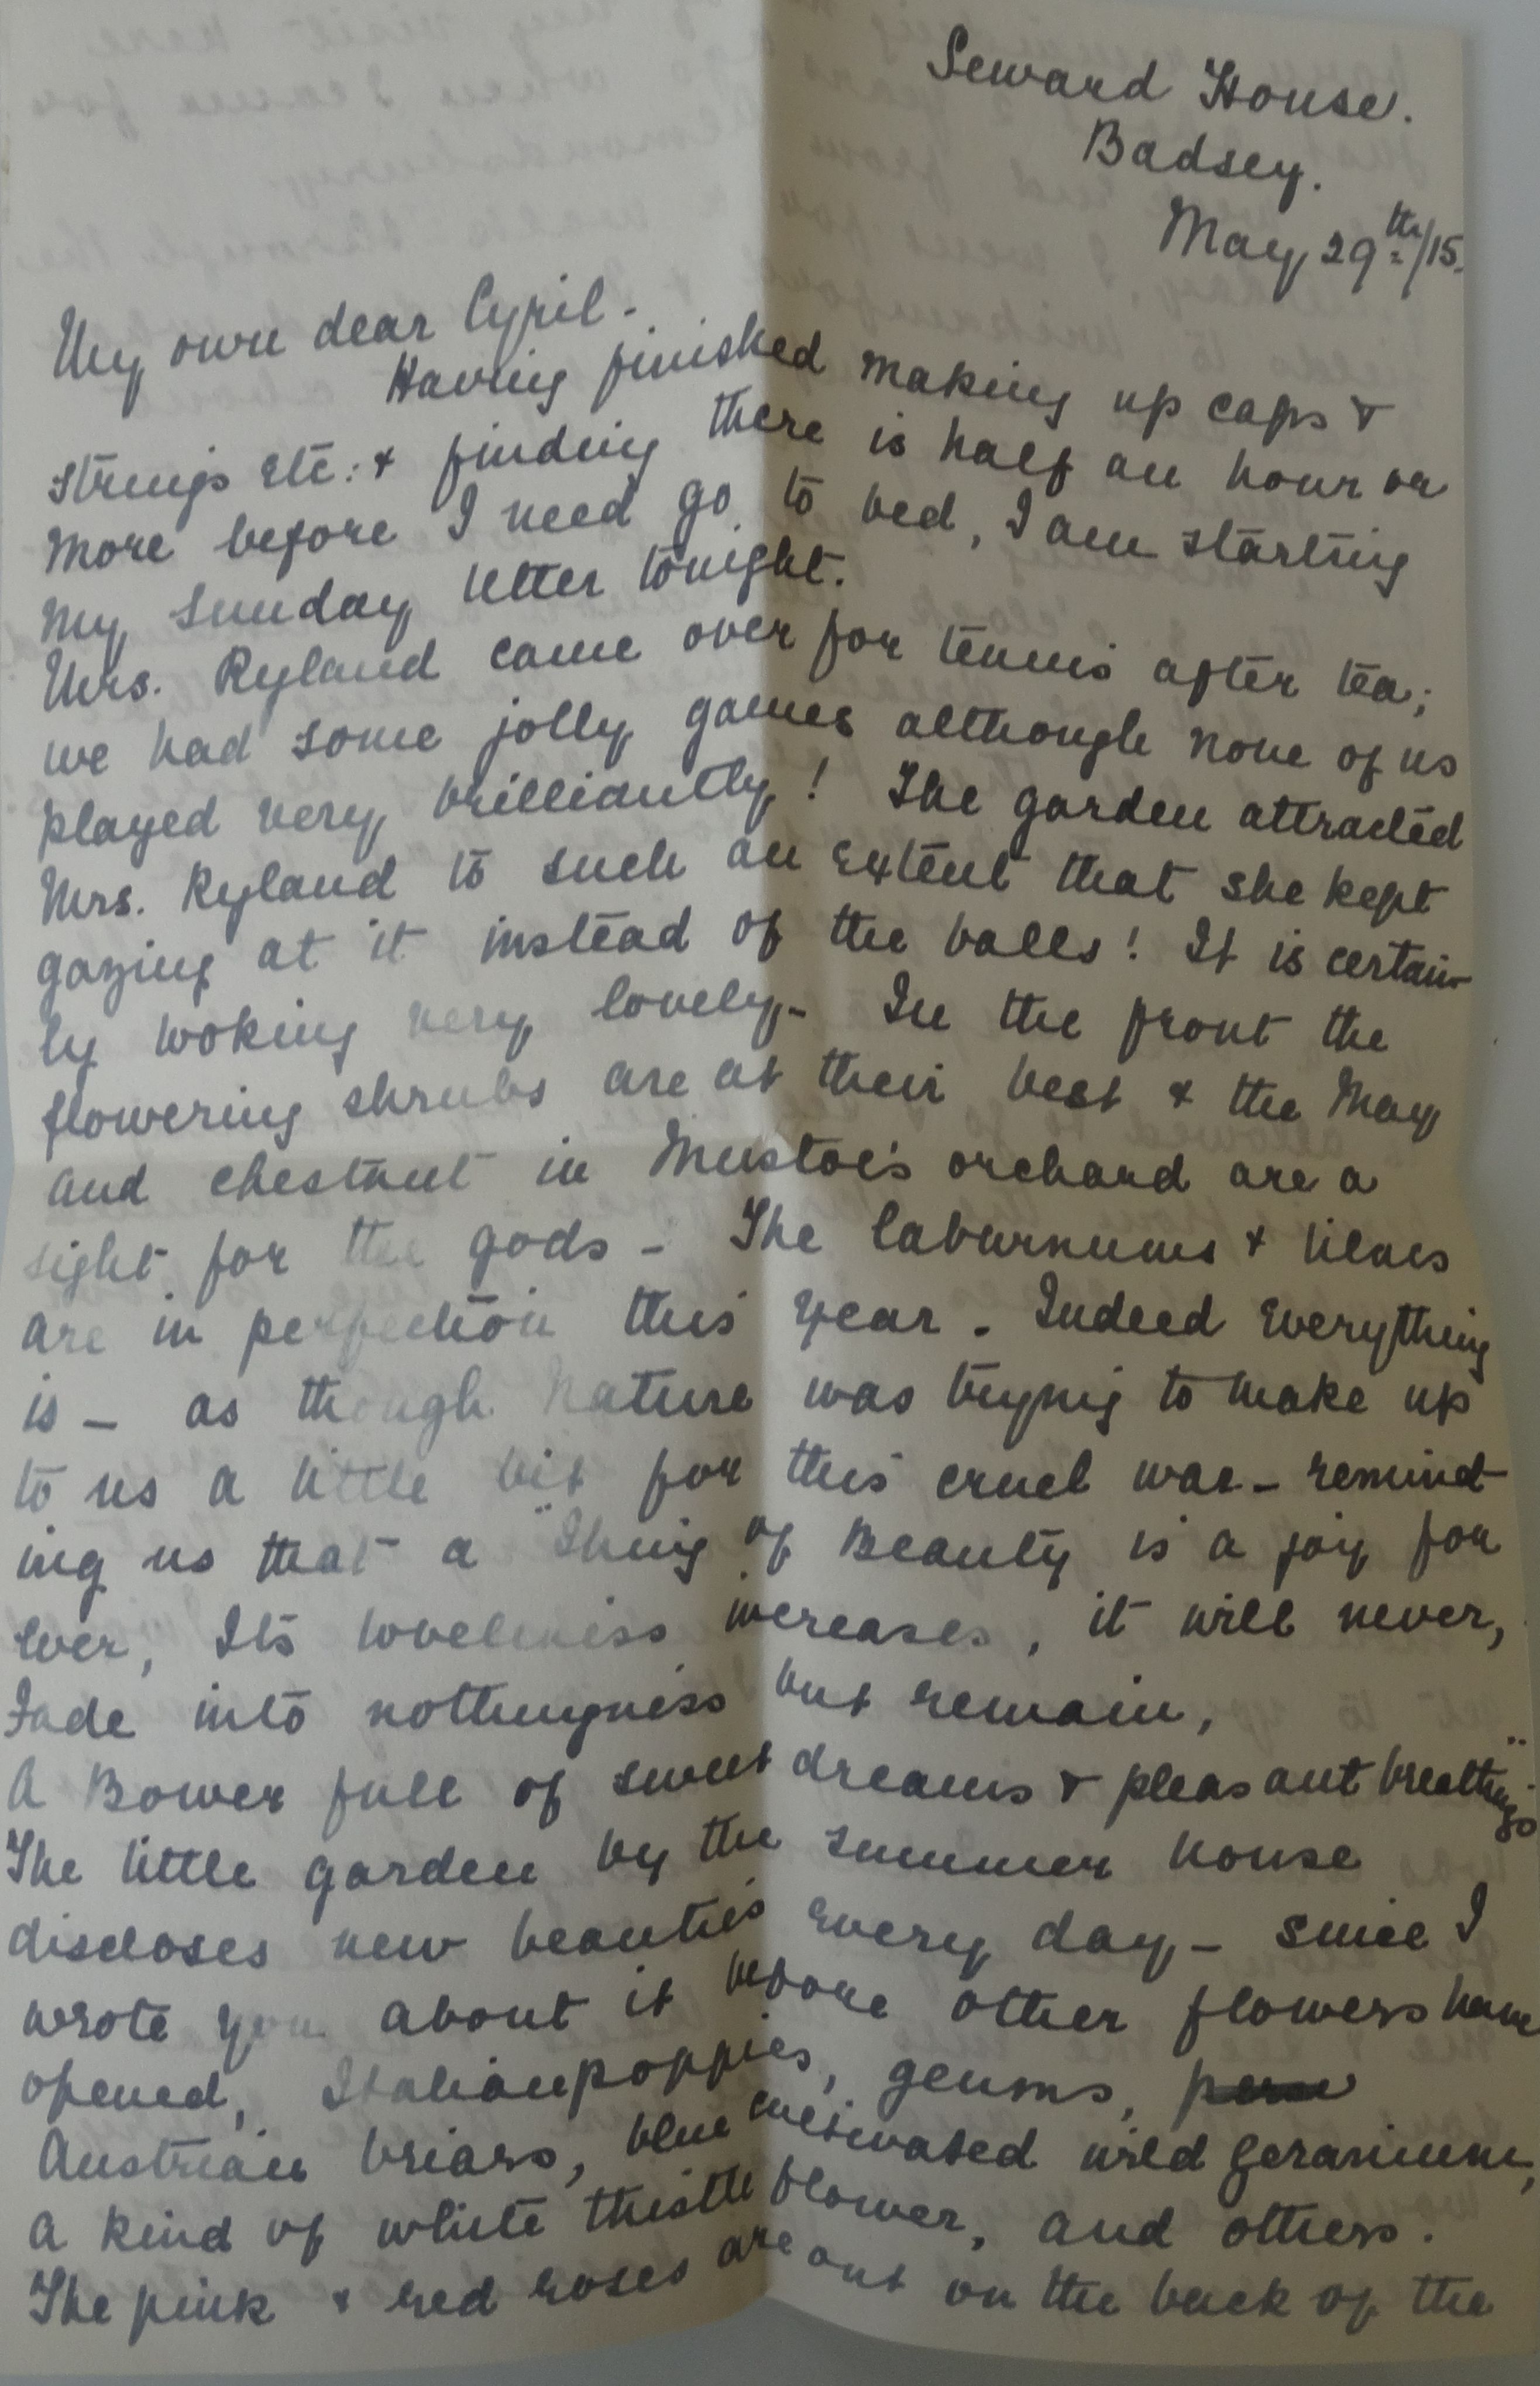 Seward House.
Badsey.
May 29th/15.
My own dear Cyril -
Having finished making up caps &
strings etc: & finding there is half an hour or
more before I need go to bed, I am starting
my Sunday letter tonight.
Mrs. Ryland came over for tennis after tea;
we had some jolly games although none of us
played very brilliantly! The garden attracted
Mrs. Ryland to such an extent that she kept
gazing at it instead of the balls! It is certain-
ly looking very lovely - In the front the
flowering shrubs are at their best & the May
and chestnut in Mustoe's orchard are a
sight for the gods - The laburnums & lilacs
are in perfection this year. Indeed everything
is - as though Nature was trying to make up
to us a little bit for this cruel war - remind-
ing us that a "Thing of Beauty is a joy for
ever, Its loveliness increases, it will never,
Fade into nothingness but remain,
A Bower full of sweet dreams & pleasant breathings"
The little garden by the summer house
discloses new beauties every day - since I
wrote you about it before other flowers have
opened, Italian poppies, geums,
Austrian briars, blue cultivated wild geranium,
a kind of white thistle flower, and others.
The pink & red roses are out on the back of the